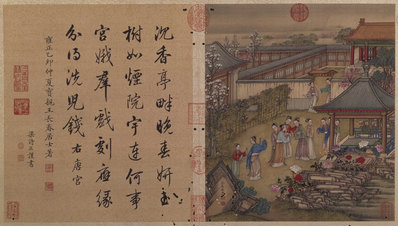 沉香亭畔晚春妍玉
樹如煙院宇連何事
宮娥群戲劇應緣
分得洗兒錢 右唐宮
雍正乙卯仲夏寶親王長春居士著
梁詩正謹書